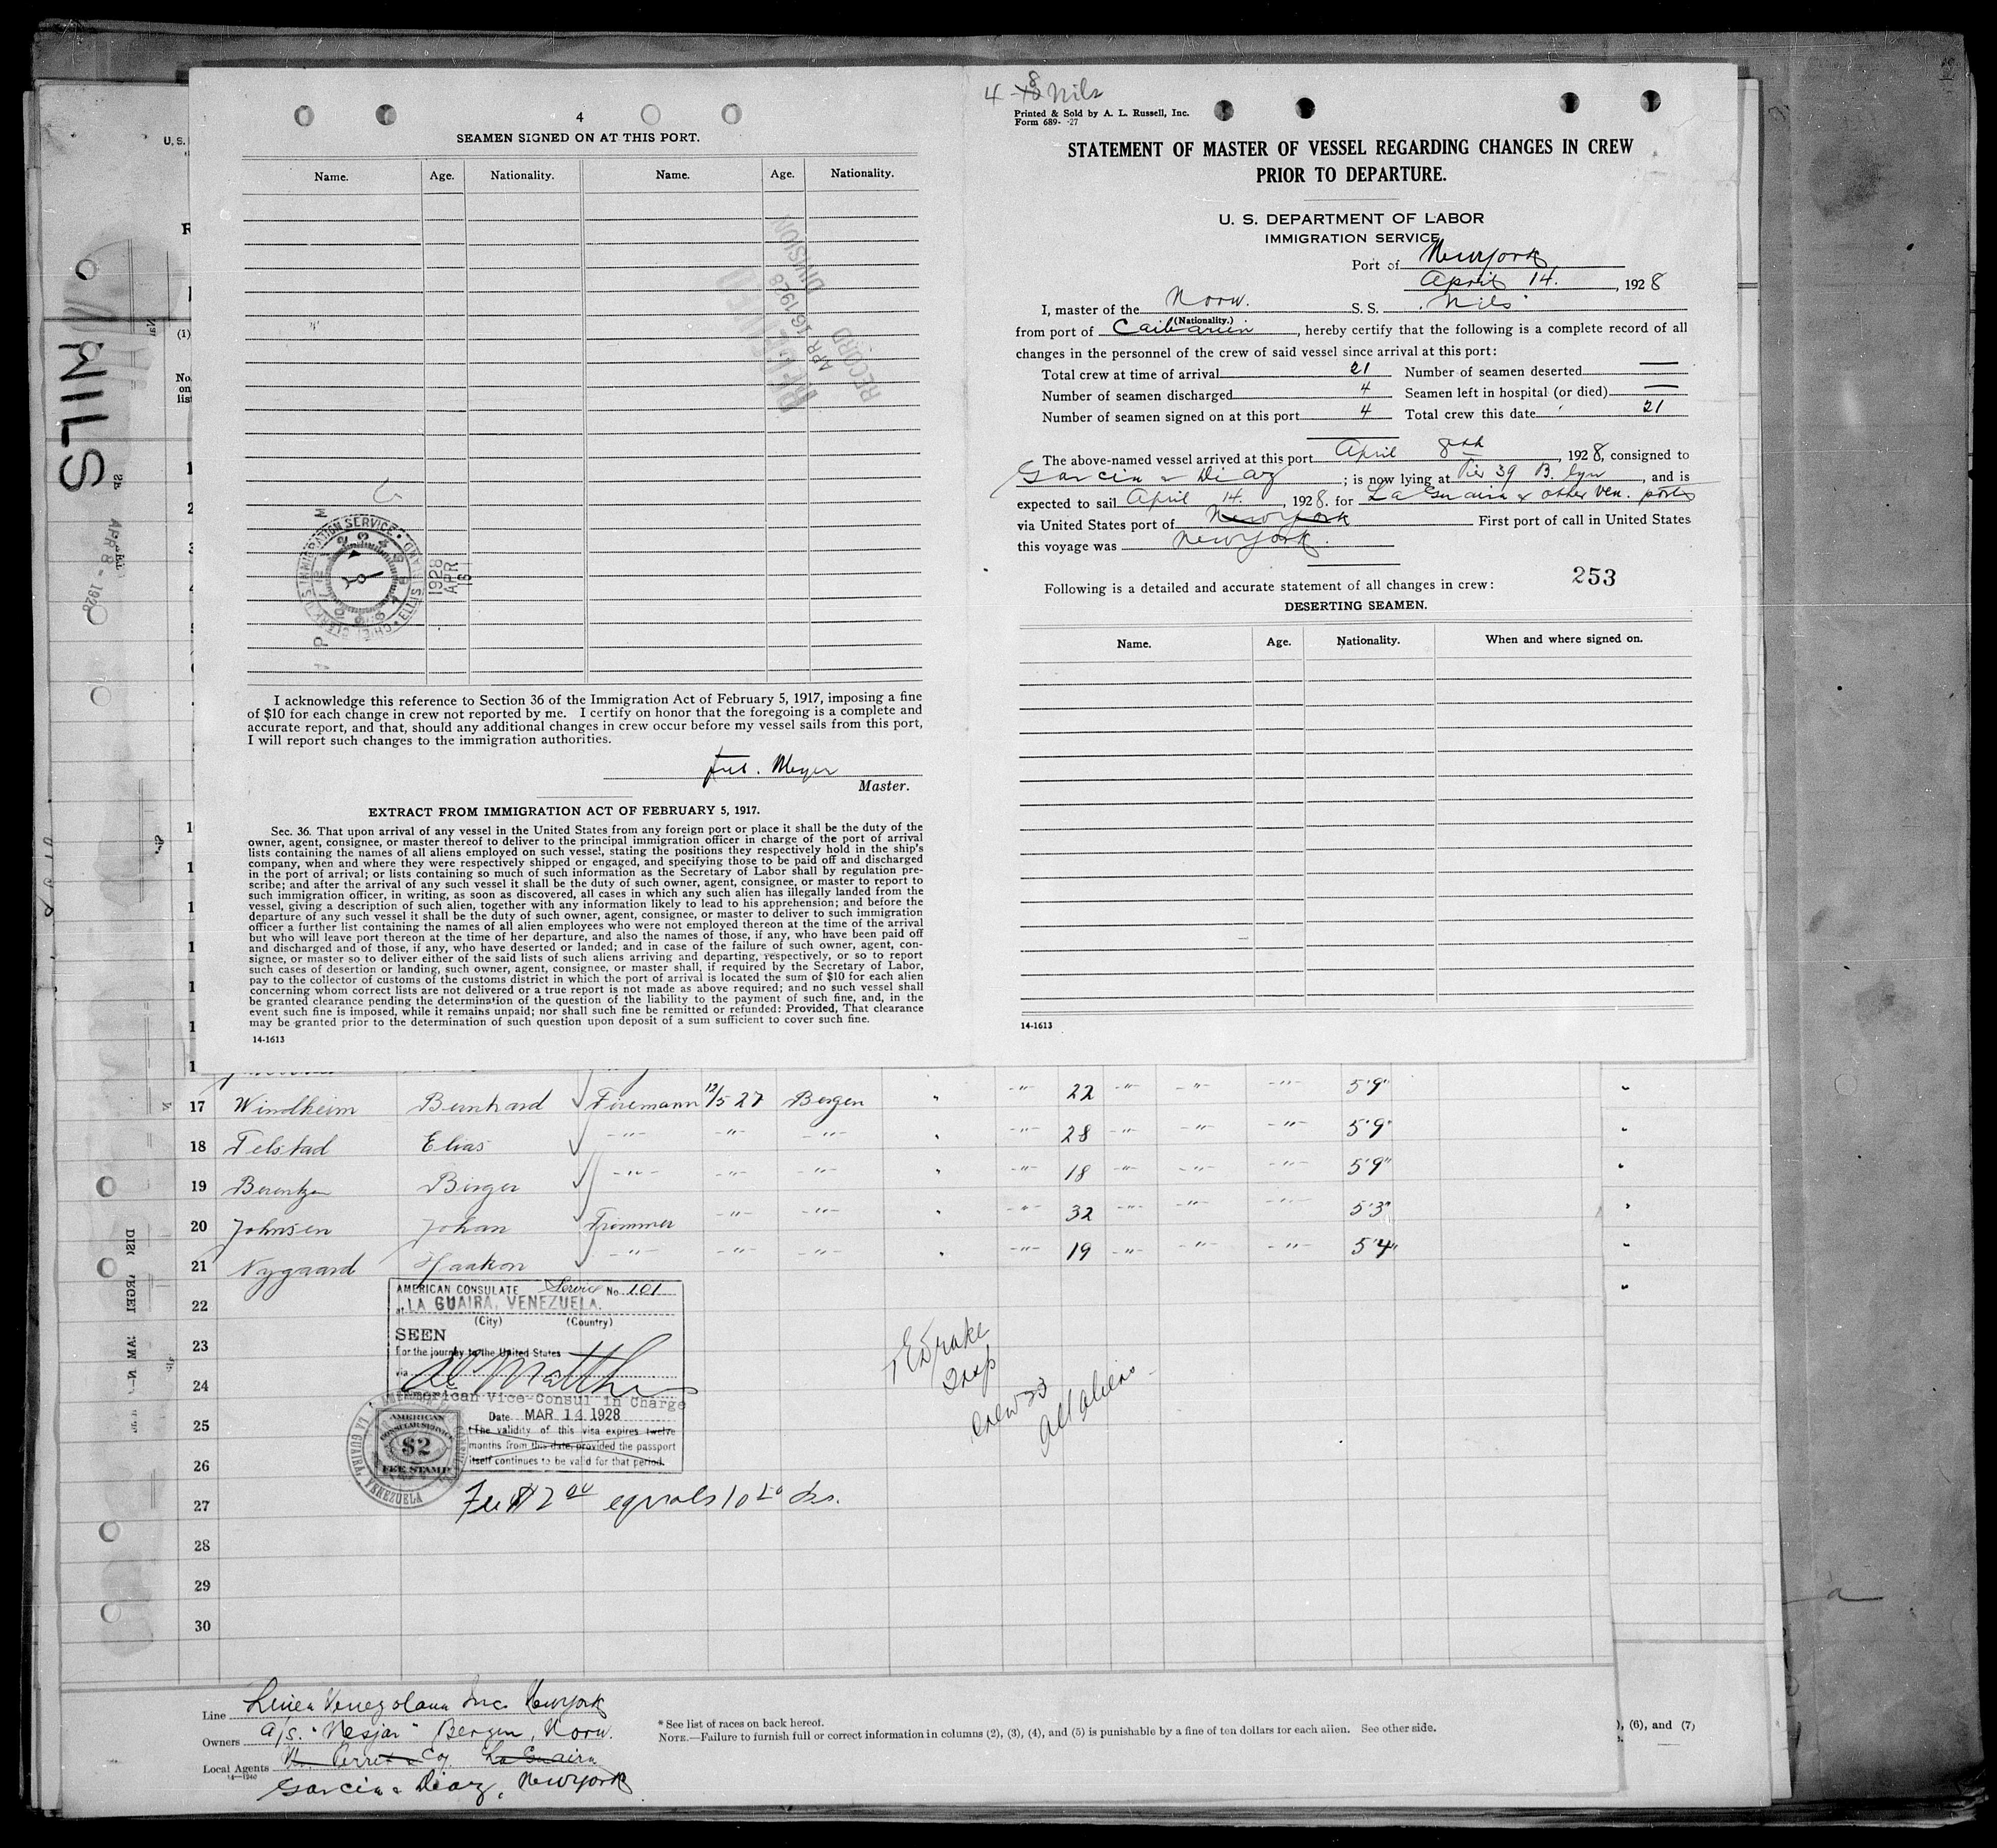 4
SEAMEN SIGNED ON AT THIS PORT.
Name. Age. Nationality. Name. Age. Nationality.
RECEIVED
APR 16 1928
RECORD DIVISION
1928
APR
16
I acknowledge this reference to Section 36 of the Immigration Act of February 5, 1917, imposing a fine
of $10 for each change in crew not reported by me. I certify on honor that the foregoing is a complete and
accurate report, and that, should any additional changes in crew occur before my vessel sails from this port,
I will report such changes to the immigration authorities.
Meyer
Master.
EXTRACT FROM IMMIGRATION ACT OF FEBRUARY 5, 1917.
Sec. 36. That upon arrival of any vessel in the United States from any foreign port or place it shall be the duty of the
owner, agent, consignee, or master thereof to deliver to the principal immigration officer in charge of the port of arrival
lists containing the names of all aliens employed on such vessel, stating the positions they respectively hold in the ship's
company, when and where they were respectively shipped or engaged, and specifying those to be paid off and discharged
in the port of arrival; or lists containing so much of such information as the Secretary of Labor shall by regulation pre-
scribe; and after the arrival of any such vessel it shall be the duty of such owner, agent, consignee, or master to report to
such immigration officer, in writing, as soon as discovered, all cases in which any such alien has illegally landed from the
vessel, giving a description of such alien, together with any information likely to lead to his apprehension; and before the
departure of any such vessel it shall be the duty of such owner, agent, consignee, or master to deliver to such immigration
officer a further list containing the names of all alien employees who were not employed thereon at the time of the arrival
but who will leave port thereon at the time of her departure, and also the names of those, if any, who have been paid off
and discharged and of those, if any, who have deserted or landed; and in case of the failure of such owner, agent, con-
signee, or master so to deliver either of the said lists of such aliens arriving and departing, respectively, or so to report
such cases of desertion or landing, such owner, agent, consignee, or master shall, if required by the Secretary of Labor,
pay to the collector of customs of the customs district in which the port of arrival is located the sum of $10 for each alien
concerning whom correct lists are not delivered or a true report is not made as above required; and no such vessel shall
be granted clearance pending the determination of the question of the liability to the payment of such fine, and, in the
event such fine is imposed, while it remains unpaid; nor shall such fine be remitted or refunded: Provided, That clearance
may be granted prior to the determination of such question upon deposit of a sum sufficient to cover such fine.
14-1613
4-8 Nils
Printed & Sold by A. L. Russell, Inc.
Form 689- -27
STATEMENT OF MASTER OF VESSEL REGARDING CHANGES IN CREW
PRIOR TO DEPARTURE.
U. S. DEPARTMENT OF LABOR
IMMIGRATION SERVICE
Port of New York
April 14. , 1928
I, master of the Norw. S. S. Nils
(Nationality.)
from port of Caibarien , hereby certify that the following is a complete record of all
changes in the personnel of the crew of said vessel since arrival at this port:
Total crew at time of arrival 21 Number of seamen deserted —
Number of seamen discharged 4 Seamen left in hospital (or died) —
Number of seamen signed on at this port 4 Total crew this date 21
The above-named vessel arrived at this port April 8th , 1928, consigned to
Garcia & Diaz ; is now lying at Pier 39 B. lyn , and is
expected to sail April 14. , 1928. for La Guaira & other Ven. ports
via United States port of New York First port of call in United States
this voyage was New York.
253
Following is a detailed and accurate statement of all changes in crew:
DESERTING SEAMEN.
Name. Age. Nationality. When and where signed on.
14-1613
NILS
APR 8 - 1928
17 Windheim Bernhard Firemann 12/5 27 Bergen " -"- 22 -"- -"- -"- 5'9" "
18 Telstad Elias -"- -"- -"- " -"- 28 -"- -"- -"- 5'9" "
19 Berentzen Birger -"- -"- -"- " -"- 18 -"- -"- -"- 5'9" "
20 Johnsen Johan Trimmer -"- -"- " -"- 32 -"- -"- -"- 5'3" "
21 Nygaard Haakon -"- -"- -"- " -"- 19 -"- -"- -"- 5'4" "
22
23
24
25
26
27
28
29
30
AMERICAN CONSULATE Service No. 101
at LA GUAIRA, VENEZUELA.
(City) (Country)
SEEN
For the journey to the United States
via
American Vice-Consul in Charge
Date MAR 14 1928
The validity of this visa expires twelve
months from this date, provided the passport
itself continues to be valid for that period.
AMERICAN
CONSULAR SERVICE
$2
FEE STAMP
LA GUAIRA, VENEZUELA
Fee $2.00 equals 10.40 Bs.
Drake
Insp
Crew 23
All aliens
Line Linea Venezolana Inc. New York
Owners A/S. "Nesjar" Bergen, Norw.
Local Agents La Guaira
14-1240
Garcia & Diaz, New York
* See list of races on back hereof.
NOTE.—Failure to furnish full or correct information in columns (2), (3), (4), and (5) is punishable by a fine of ten dollars for each alien. See other side.
), (6), and (7)